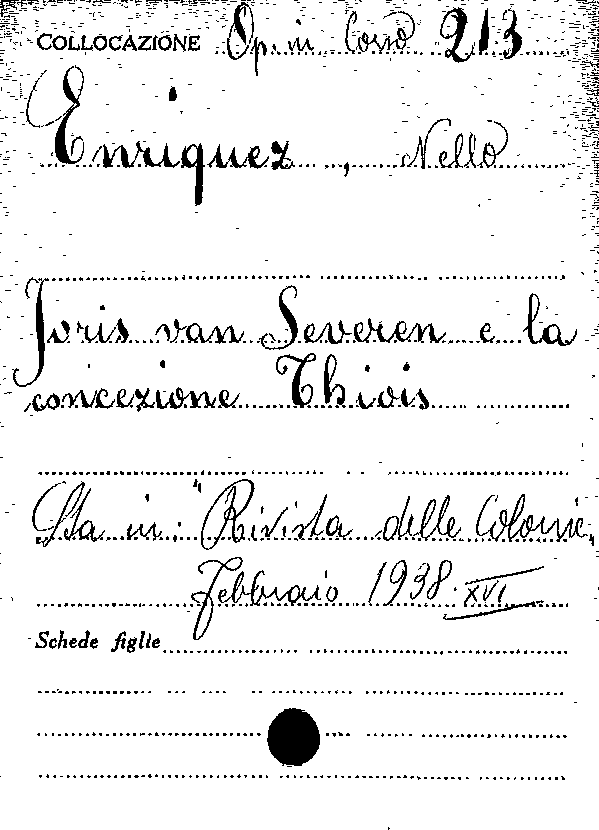 COLLOCAZIONE Op. in Corso 213
Enriquez, Nello
Joris van Severen e la
concezione Thiois
Sta in: "Rivista delle Colonie,
Febbraio 1938. XVI
Schede figlie